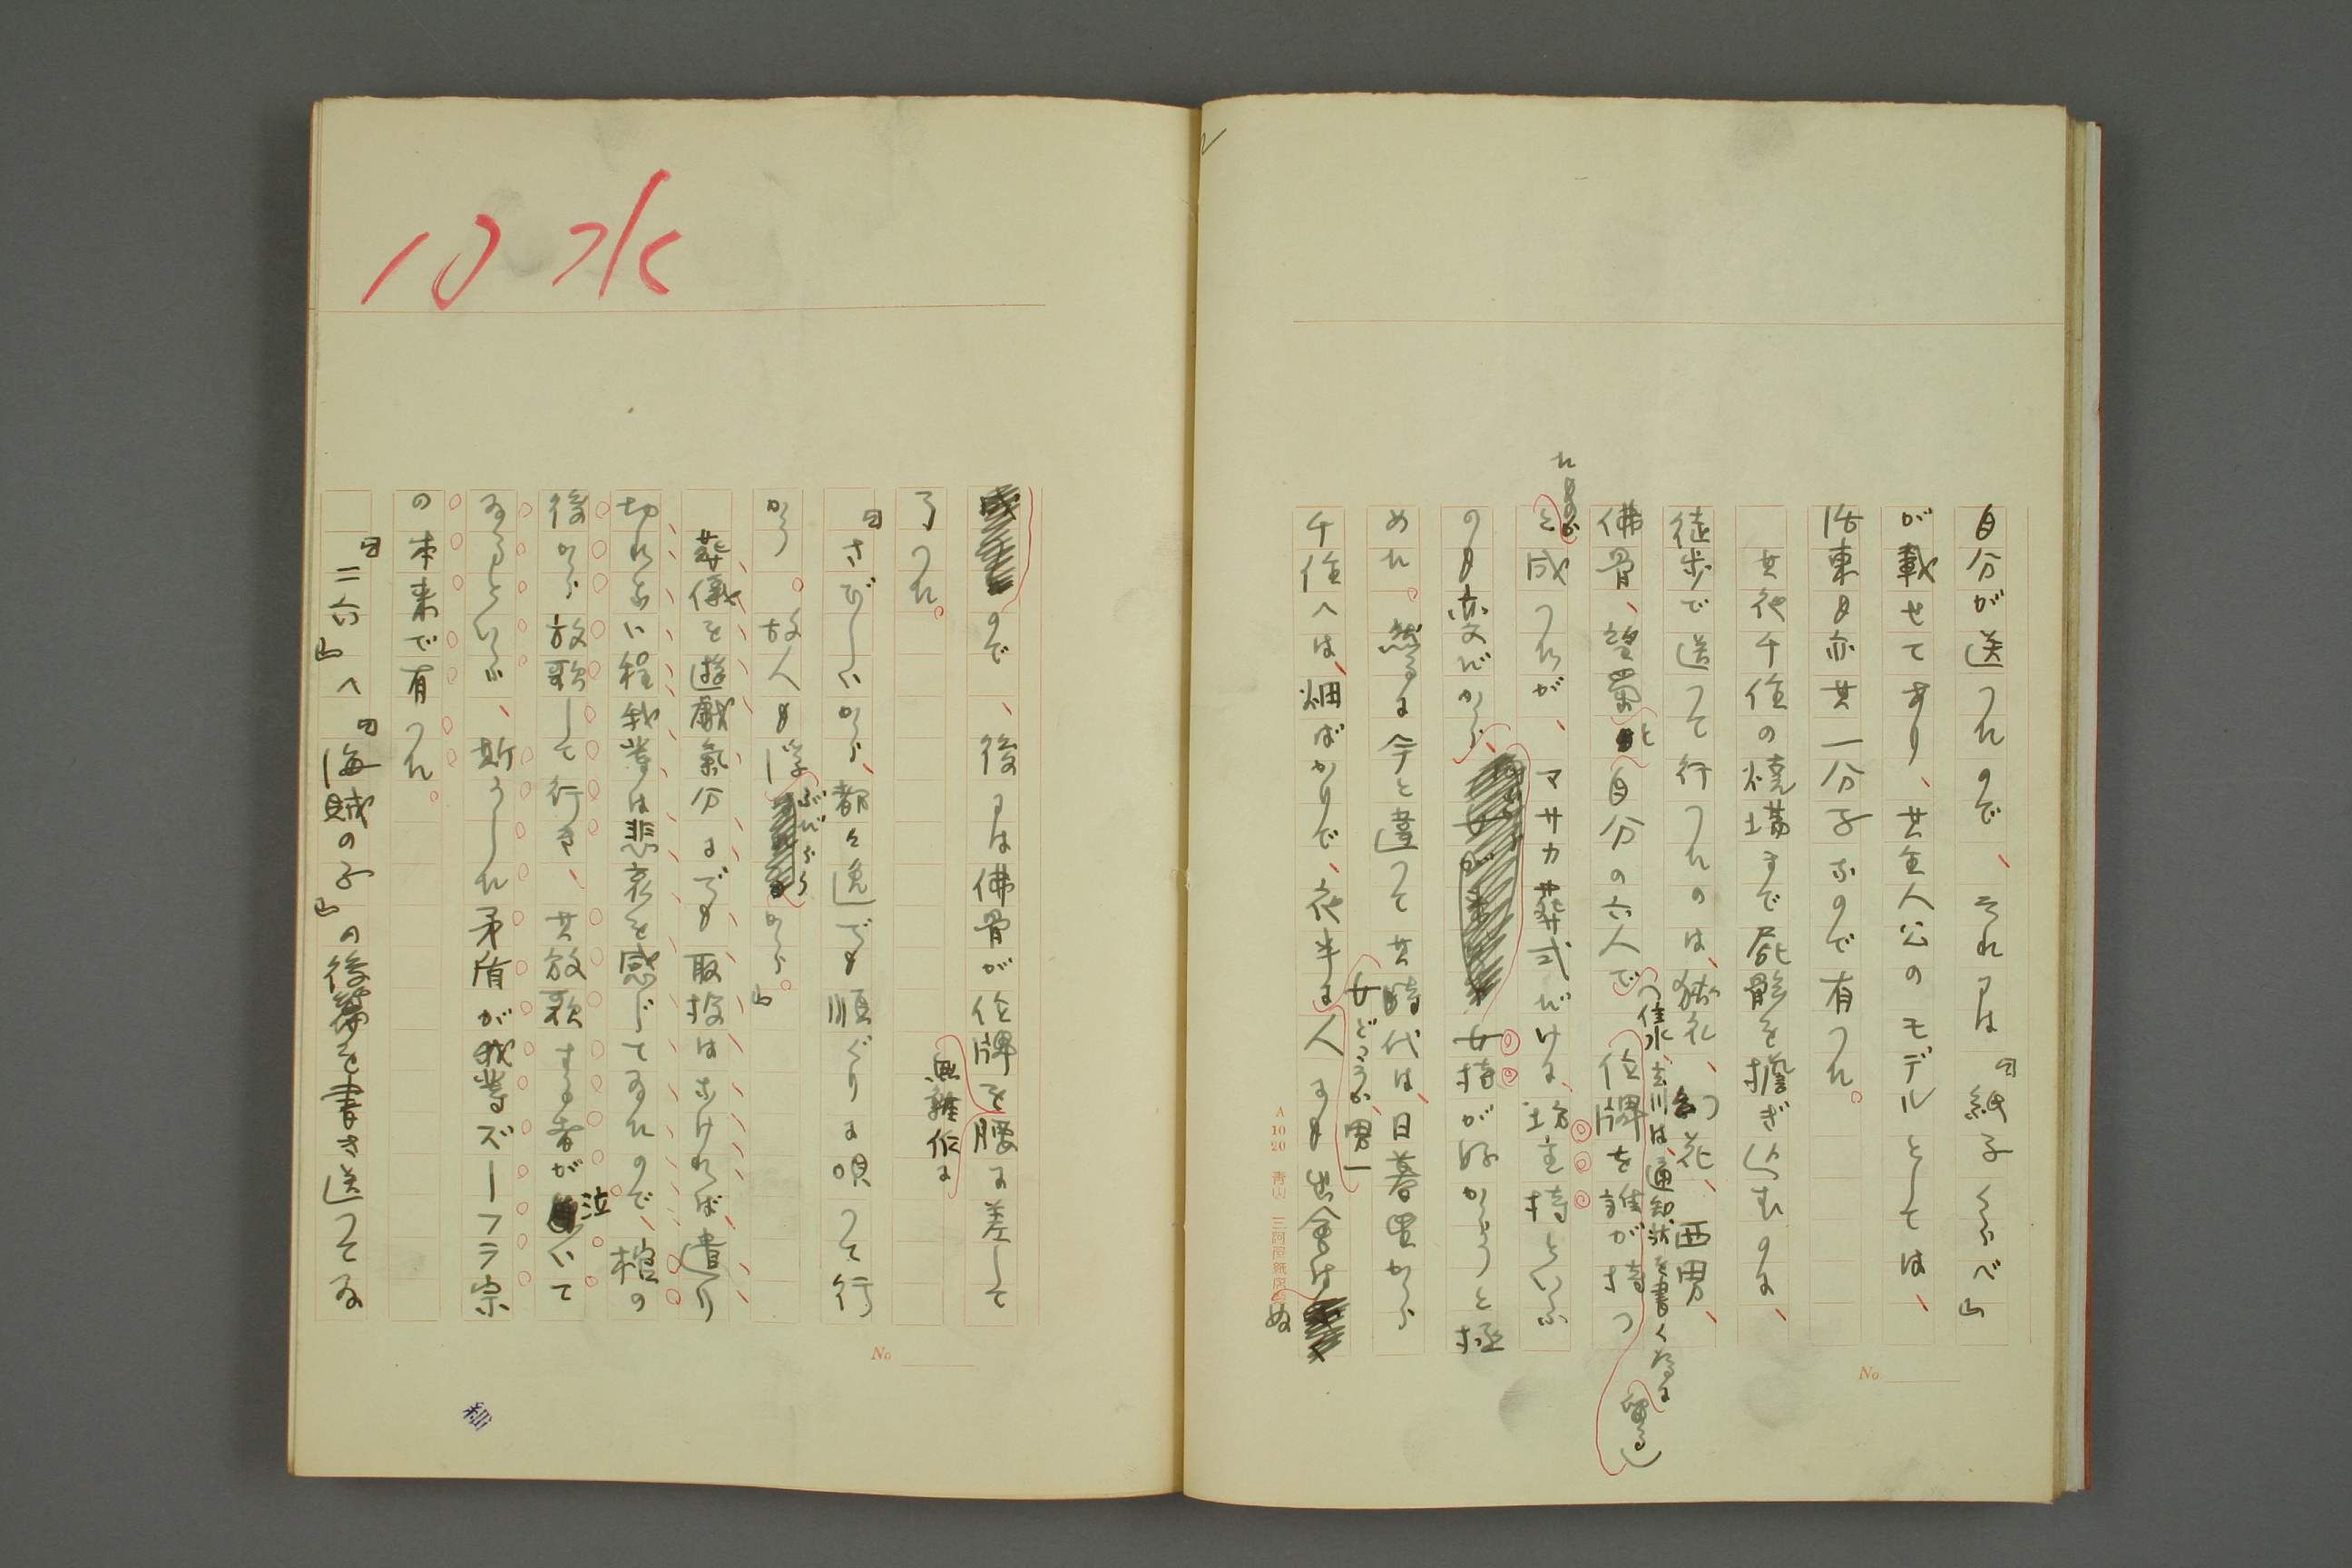 自分が送つたので、それには『紙子くらべ』
が載せてあり、其主人公のモデルとしては、
活東も亦其一分子なので有つた。
其夜千住の燒場まで屍骸を擔ぎ込むのに、
徒歩で送つて行つたのは、猿礼、幻花、两男、
(佳水、玄川は、通知状を書くために留る)
佛骨、望蜀と自分の六人で位牌を誰が持つ
たものか
と成つたが、マサカ葬式だけに、坊主持といふ
のも変だから、女持が好からうと極
めた。然るに今と違つて其時代は、日暮里から
女どころか、男一
千住へは、畑ばかりで、夜半に人にも出會は
ぬ
A 10 20
No
ので、後には佛骨が位牌を腰に差して
無雑作に
了つた。
『さびしいから、都々逸でも順ぐりに唄つて行
かう。故人も浮ぶだらうから。』
葬儀を遊戯氣分にでも取扱はなければ遣り
切れない程我等は悲哀を感じてゐたので、棺の
後から放歌して行き、其放歌する者が泣いて
ゐるといふ、斯うした矛盾が我等ズーフラ宗
の本来で有つた。
『二六』へ『海賊の子』の後篇を書き送つてゐ
No
10 水